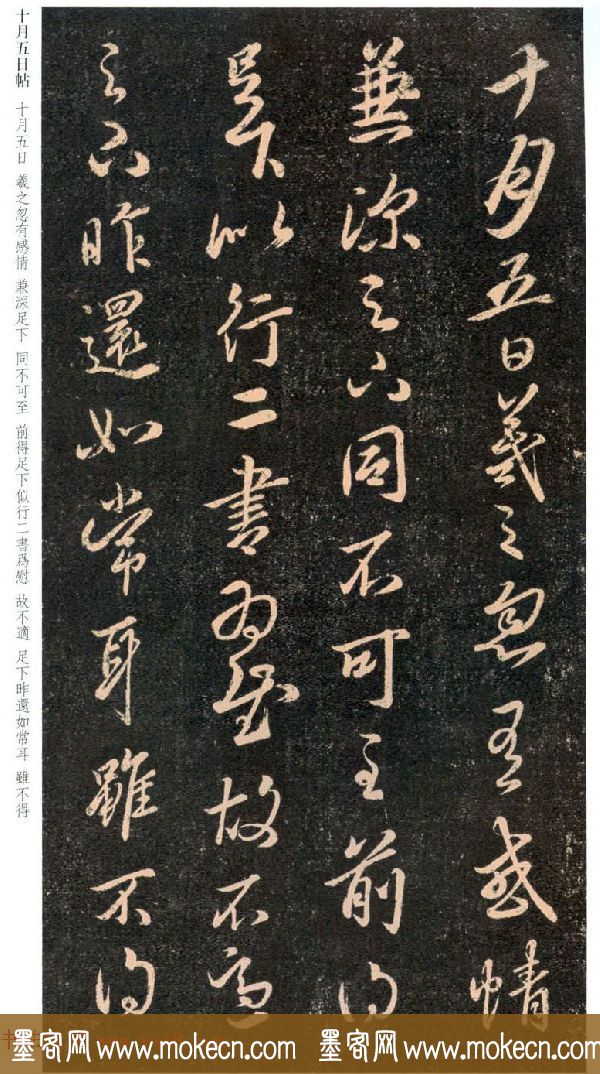 十月五日羲之忽有感情
兼深足下同不可至前得
足下似行二書為慰故不適
足下昨還如常耳雖不得
十月五日帖 十月五日 羲之忽有感情 兼深足下 同不可至 前得足下似行二書爲慰 故不適 足下昨還如常耳 雖不得
墨客网 www.mokecn.com 墨客网 www.mokecn.com